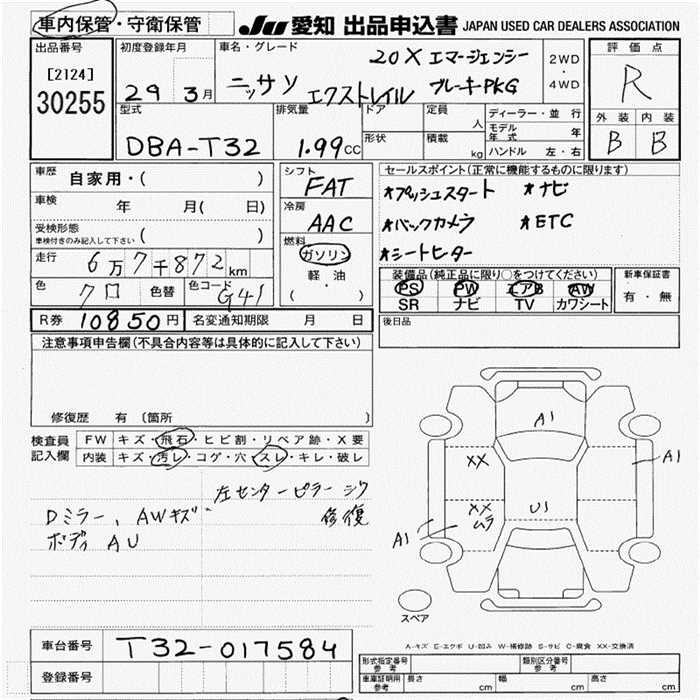 車内保管・守衛保管
JU 愛知 出品申込書 JAPAN USED CAR DEALERS ASSOCIATION
出品番号
[2124]
30255
初度登録年月
29 3月
車名・グレード
ニッサン エクストレイル
20X エマージェンシー
ブレーキPKG
2WD
・
4WD
評価点
R
外装 内装
B B
型式
DBA-T32
排気量
1.99CC
ドア
形状
定員
人
積載
kg
ディーラー・並行
モデル年式 年
ハンドル 左・右
車歴 自家用・( )
車検 年 月( 日)
受検形態
車検付きのみ記入して下さい ( )
走行 6万7千872km
色 クロ 色替 色コード G41
シフト
FAT
冷房
AAC
燃料
ガソリン
軽油
( )
セールスポイント(正常に機能するものに限ります)
*プッシュスタート *ナビ
*バックカメラ *ETC
*シートヒーター
装備品(純正品に限り○をつけてください)
PS PW エアB AW
SR ナビ TV カワシート
新車保証書
有・無
R券 10850円 名変通知期限 月 日
後日品
注意事項申告欄(不具合内容等は具体的に記入して下さい)
修復歴 有 〔箇所 〕
検査員
記入欄
FW キズ・飛石・ヒビ割・リペア跡・X要
内装 キズ・汚レ・コゲ・穴・スレ・キレ・破レ
左センターピラー
修復
Dミラー、AWキズ
ボディ AU
A1
XX
A1
XX
ムラ
U1
A1
スペア
A-キズ E-エクボ U-凹み W-補修跡 S-サビ C-腐食 XX-交換済
車台番号 T32-017584
登録番号
形式指定番号
参考
類別区分番号
参考
車庫証明用
参考
長さ cm 幅 cm 高さ cm